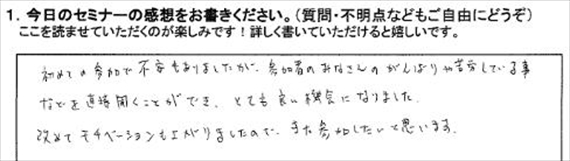 1. 今日のセミナーの感想をお書きください。(質問・不明点などもご自由にどうぞ)
ここを読ませていただくのが楽しみです！詳しく書いていただけると嬉しいです。
初めての参加で不安もありましたが、参加者のみなさんのがんばりや苦労している事
などを直接聞くことができ、とても良い機会になりました。
改めてモチベーションも上がりましたので、また参加したいと思います。